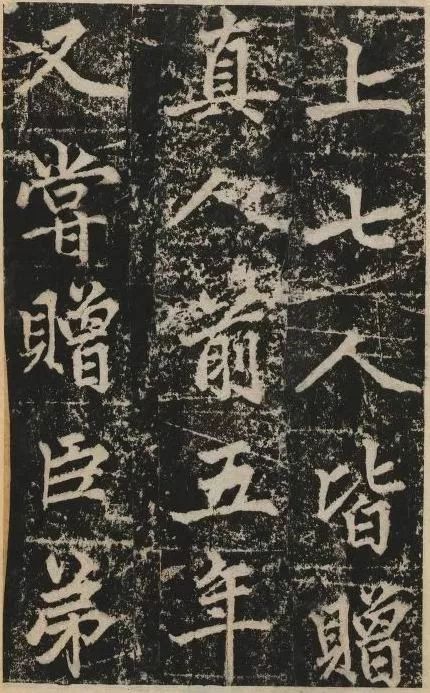 上七人皆贈
真人前五年
又嘗贈臣弟